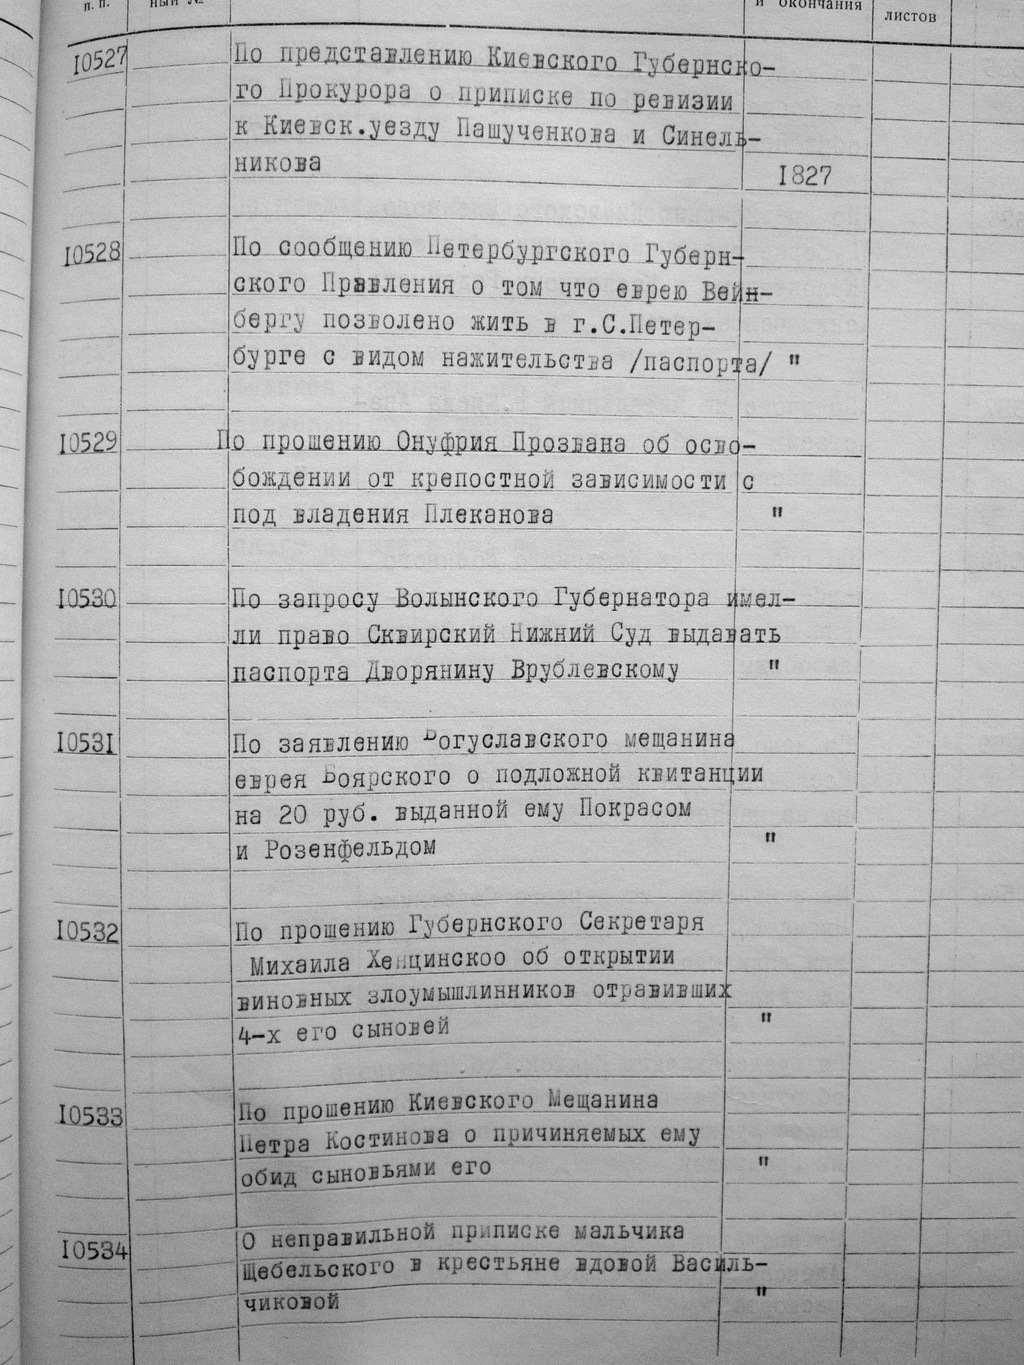 п.п.
ный №
и окончания
листов
10527
По представлению Киевского Губернско-
го Прокурора о приписке по ревизии
к Киевск.уезду Пашученкова и Синель-
никова
1827
10528
По сообщению Петербургского Губерн-
ского Правления о том что еврею Вейн-
бергу позволено жить в г.С.Петер-
бурге с видом нажительства /паспорта/ "
10529
По прошению Онуфрия Прозвана об осво-
бождении от крепостной зависимости с
под владения Плеканова "
10530
По запросу Волынского Губернатора имел-
ли право Сквирский Нижний Суд выдавать
паспорта Дворянину Врублевскому "
10531
По заявлению Богуславского мещанина
еврея Боярского о подложной квитанции
на 20 руб. выданной ему Покрасом
и Розенфельдом "
10532
По прошению Губернского Секретаря
Михаила Хенцинскоо об открытии
виновных злоумышлинников отравивших
4-х его сыновей "
10533
По прошению Киевского Мещанина
Петра Костинова о причиняемых ему
обид сыновьями его "
10534
О неправильной приписке мальчика
Щебельского в крестьяне вдовой Василь-
чиковой "